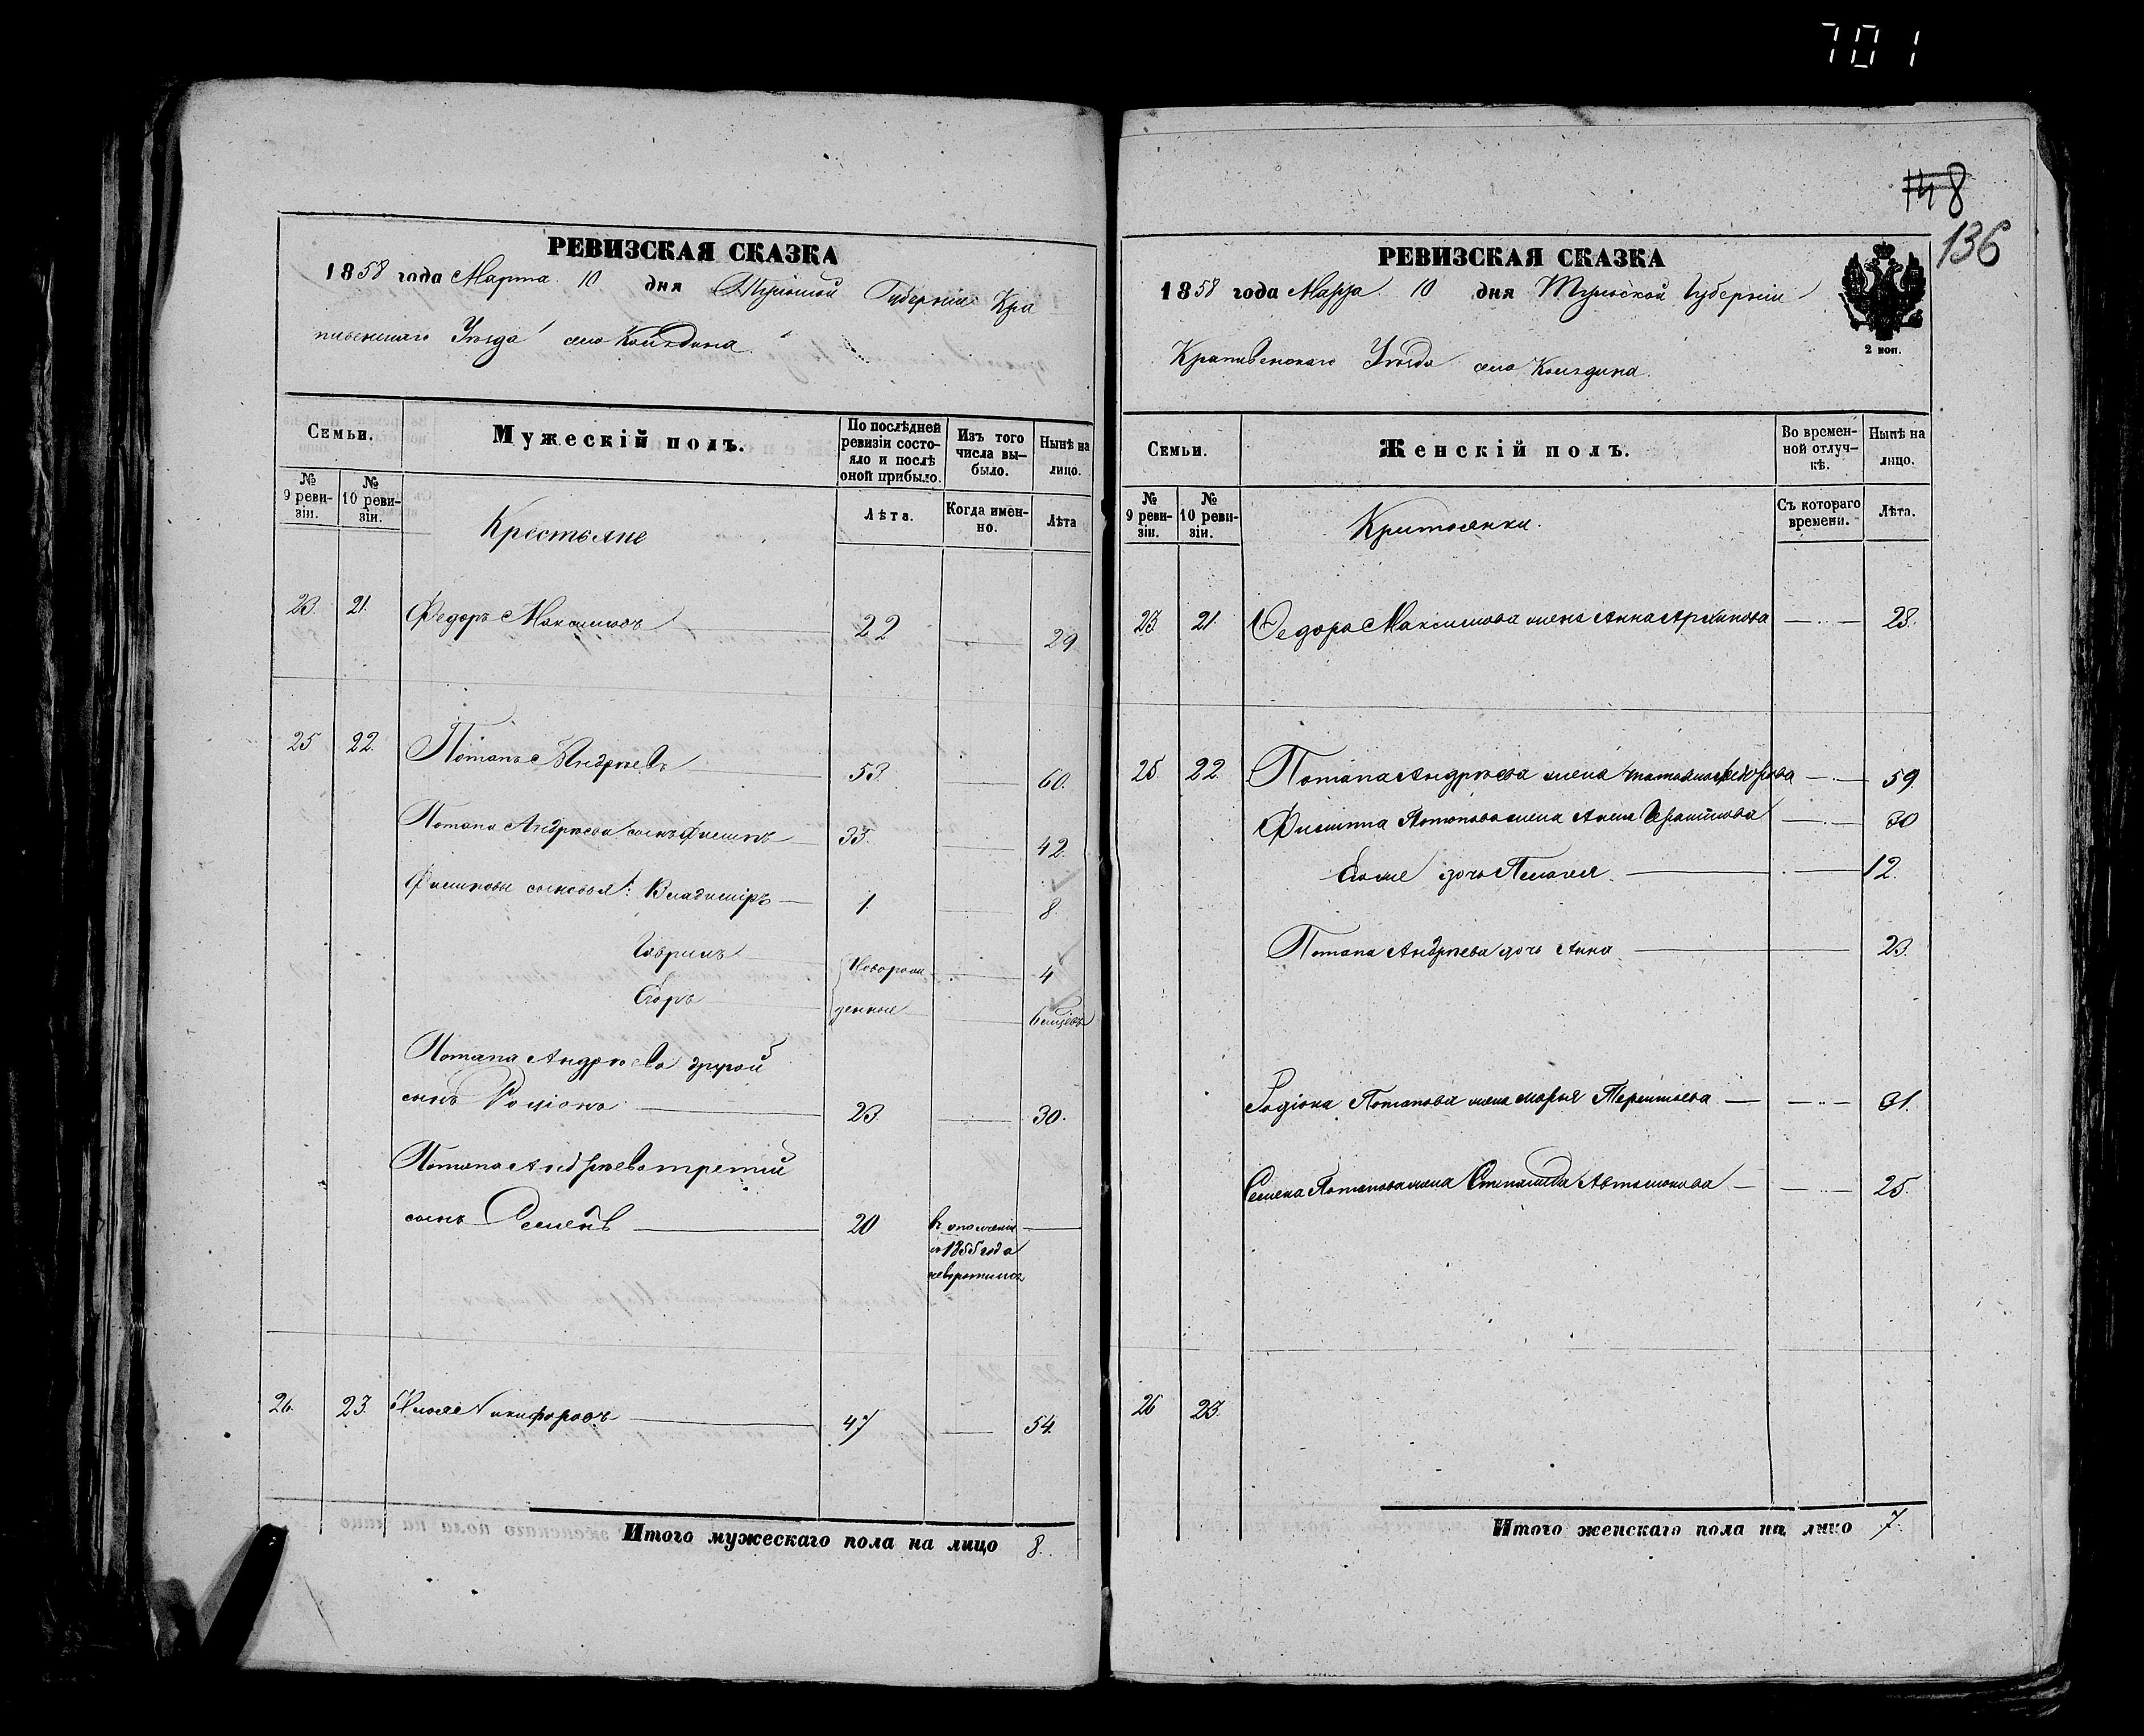 701
148
136
РЕВИЗСКАЯ СКАЗКА
1858 года Марта 10 дня Тульской Губерніи Кра
пивенскаго Уѣзда село
Семьи.
Мужескій полъ.
По послѣдней ревизіи состояло и послѣ оной прибыло.
Изъ того числа выбыло.
Нынѣ на лицо.
№ 9 ревизіи.
№ 10 ревизіи.
Крестьяне
Лѣта.
Когда именно.
Лѣта
23. 21. Федоръ Максимовъ 22 29
25 22. Потапъ Андрѣевъ 53. 60.
Потапа Андрѣева сынъ Филипъ 35. 42.
Филиповы сыновья: Владиміръ 1. 8.
Гаврилъ Новорож 4
Егоръ денные 6 мѣсяц
Потапа Андрѣева другой
сынъ Родіонъ 23 30.
Потапа Андрѣева третій
сынъ Семенъ 20 в ополченіи
с 1855 года
невратился
26. 23. Илья Никифоровъ 47 54.
Итого мужескаго пола на лицо 8.
РЕВИЗСКАЯ СКАЗКА
1858 года Марта 10 дня Тульской Губерніи
Крапивенскаго Уѣзда село
2 коп.
Семьи.
Женскій полъ.
Во временной отлучкѣ.
Нынѣ на лицо.
№ 9 ревизіи.
№ 10 ревизіи.
Крестьянки.
Съ котораго времени.
Лѣта.
23 21 Федора Максимова жена Анна Архипова 28.
25. 22. Потапа Андрѣева жена Федорова 59.
Филиппа Потапова жена Анна 30
дочь Пелагея 12.
Потапа Андрѣева дочь Анна 23.
Родіона Потапова жена Марья Терентьева 31.
Семена Потапова жена Степанида Автомонова 25.
26 23.
Итого женскаго пола на лицо 7.